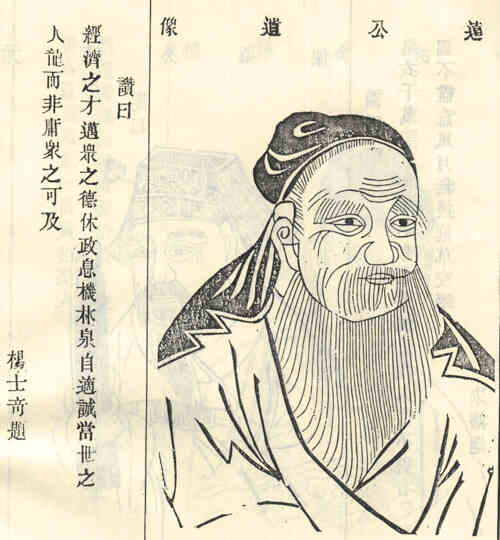 公遺像
讚曰
經濟之才邁衆之德休政息機林泉自適誠當世之
人龍而非庸衆之可及
楊士奇題